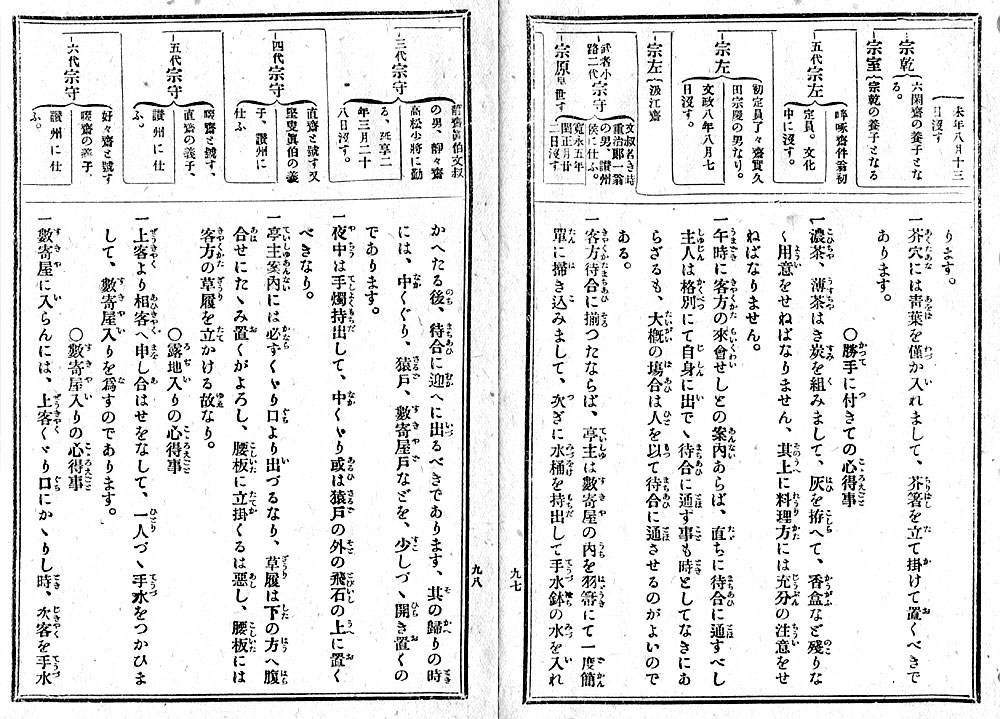 未年八月十三
日沒す。
宗乾
六閑齋の養子とな
る。
宗室
宗乾の養子となる
五代宗左
啐啄齋件翁初
定員。文化
中に沒す。
宗左
初定員了々齋實久
田宗慶の男なり。
文政八年八月七
日沒す。
宗左
汲江齋
武者小
路二代
宗守
文叔名き時
重治郞一翁
の男、讃州
侯に仕ふ。
寬永五年
閏正月廿
二日沒す
宗原
早世す
ります。
一芥穴には靑葉を僅か入れまして、芥箸を立て掛けて置くべきで
あります。
〇勝手に付きての心得事
一濃茶、薄茶はき炭を組みまして、灰を拵へて、香盒など殘りな
く用意をせねばなりません、其上に料理方には充分の注意をせ
ねばなりません。
一午時に客方の來會せしとの案內あらば、直ちに待合に通すべし
主人は格別にて自身に出で丶待合に通す事も時としてなきにあ
らざるも、大槪の場合は人を以て待合に通させるのがよいので
ある。
一客方待合に揃つたならば、亭主は數寄屋の內を羽箒にて一度簡
單に掃き込みまして、次ぎに水桶を持出して手水鉢の水を入れ
九七
三代宗守
靜齋眞伯文叔
の男、靜々齋
高松少將に勤
る、延享二
年三月二十
八日沒す。
四代宗守
直齋と號す又
堅叟眞伯の義
子、讃州に
仕ふ
五代宗守
啜齋と號す、
直齋の義子、
讃州に仕
ふ。
六代宗守
好々齋と號す
啜齋の義子、
讃州に仕
ふ。
かへたる後、待合に迎へに出るべきであります、其の歸りの時
には、中くぐり、猿戶、數寄屋戶などを、少しづヽ開き置くの
であります。
一夜中は手燭持出して、中くヾり或は猿戶の外の飛石の上に置く
べきなり。
一亭主案內には必ずくヾり口より出づるなり、草履は下の方へ腹
合せにたヽみ置くがよろし、腰板に立掛くるは惡し、腰板には
客方の草履を立てかける故なり。
〇露地入りの心得事
一上客より相客へ申し合はせをなして、一人づヽ手水をつかひま
して、數寄屋入りを爲すのであります。
〇數寄屋入りの心得事
一數寄屋に入らんには、上客くヾり口にかヽりし時、次客を手水
九八